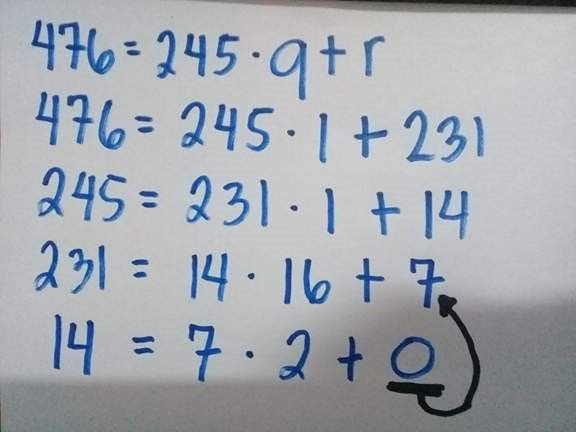 476 = 245 · q + r
476 = 245 · 1 + 231
245 = 231 · 1 + 14
231 = 14 · 16 + 7
14 = 7 · 2 + 0